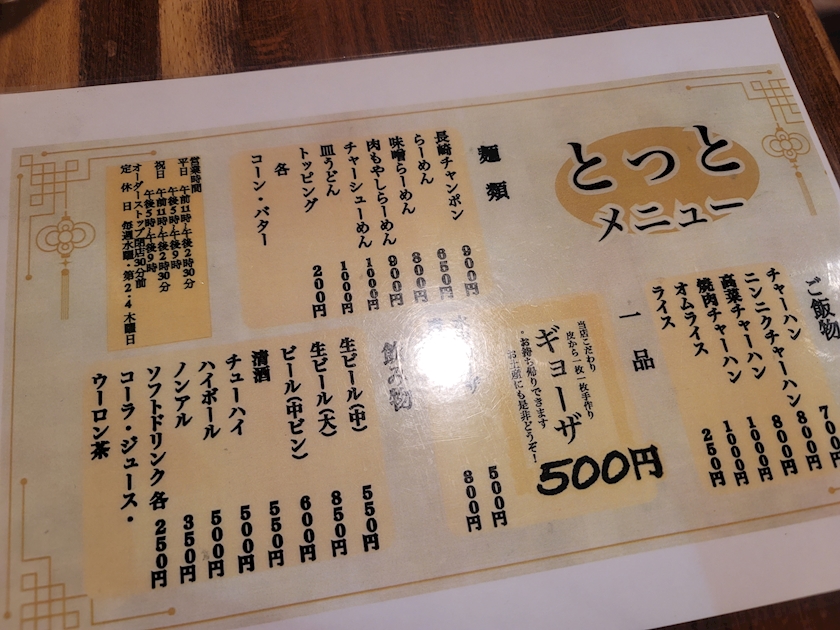 とっと
メニュー
ご飯物
チャーハン 700円
ニンニクチャーハン 800円
高菜チャーハン 800円
焼肉チャーハン 1000円
オムライス 1000円
ライス 250円
麺類
長崎チャンポン 900円
らーめん 650円
味噌らーめん 800円
肉もやしらーめん 900円
チャーシューめん 1000円
皿うどん 1000円
トッピング
各 200円
コーン・バター
営業時間
平日 午前11時~午後2時30分
午後5時~午後9時
祝日 午前11時~午後2時30分
午後5時~午後9時
オーダーストップ閉店30分前
定休日 毎週水曜・第2・4木曜日
一品
当店こだわり
皮から一枚一枚手作り
ギョーザ
500円
*お持ち帰りできます
お土産にも是非どうぞ!
500円
800円
飲み物
生ビール(中) 550円
生ビール(大) 850円
ビール(中ビン) 600円
清酒 550円
チューハイ 500円
ハイボール 500円
ノンアル 350円
ソフトドリンク 各250円
コーラ・ジュース・
ウーロン茶